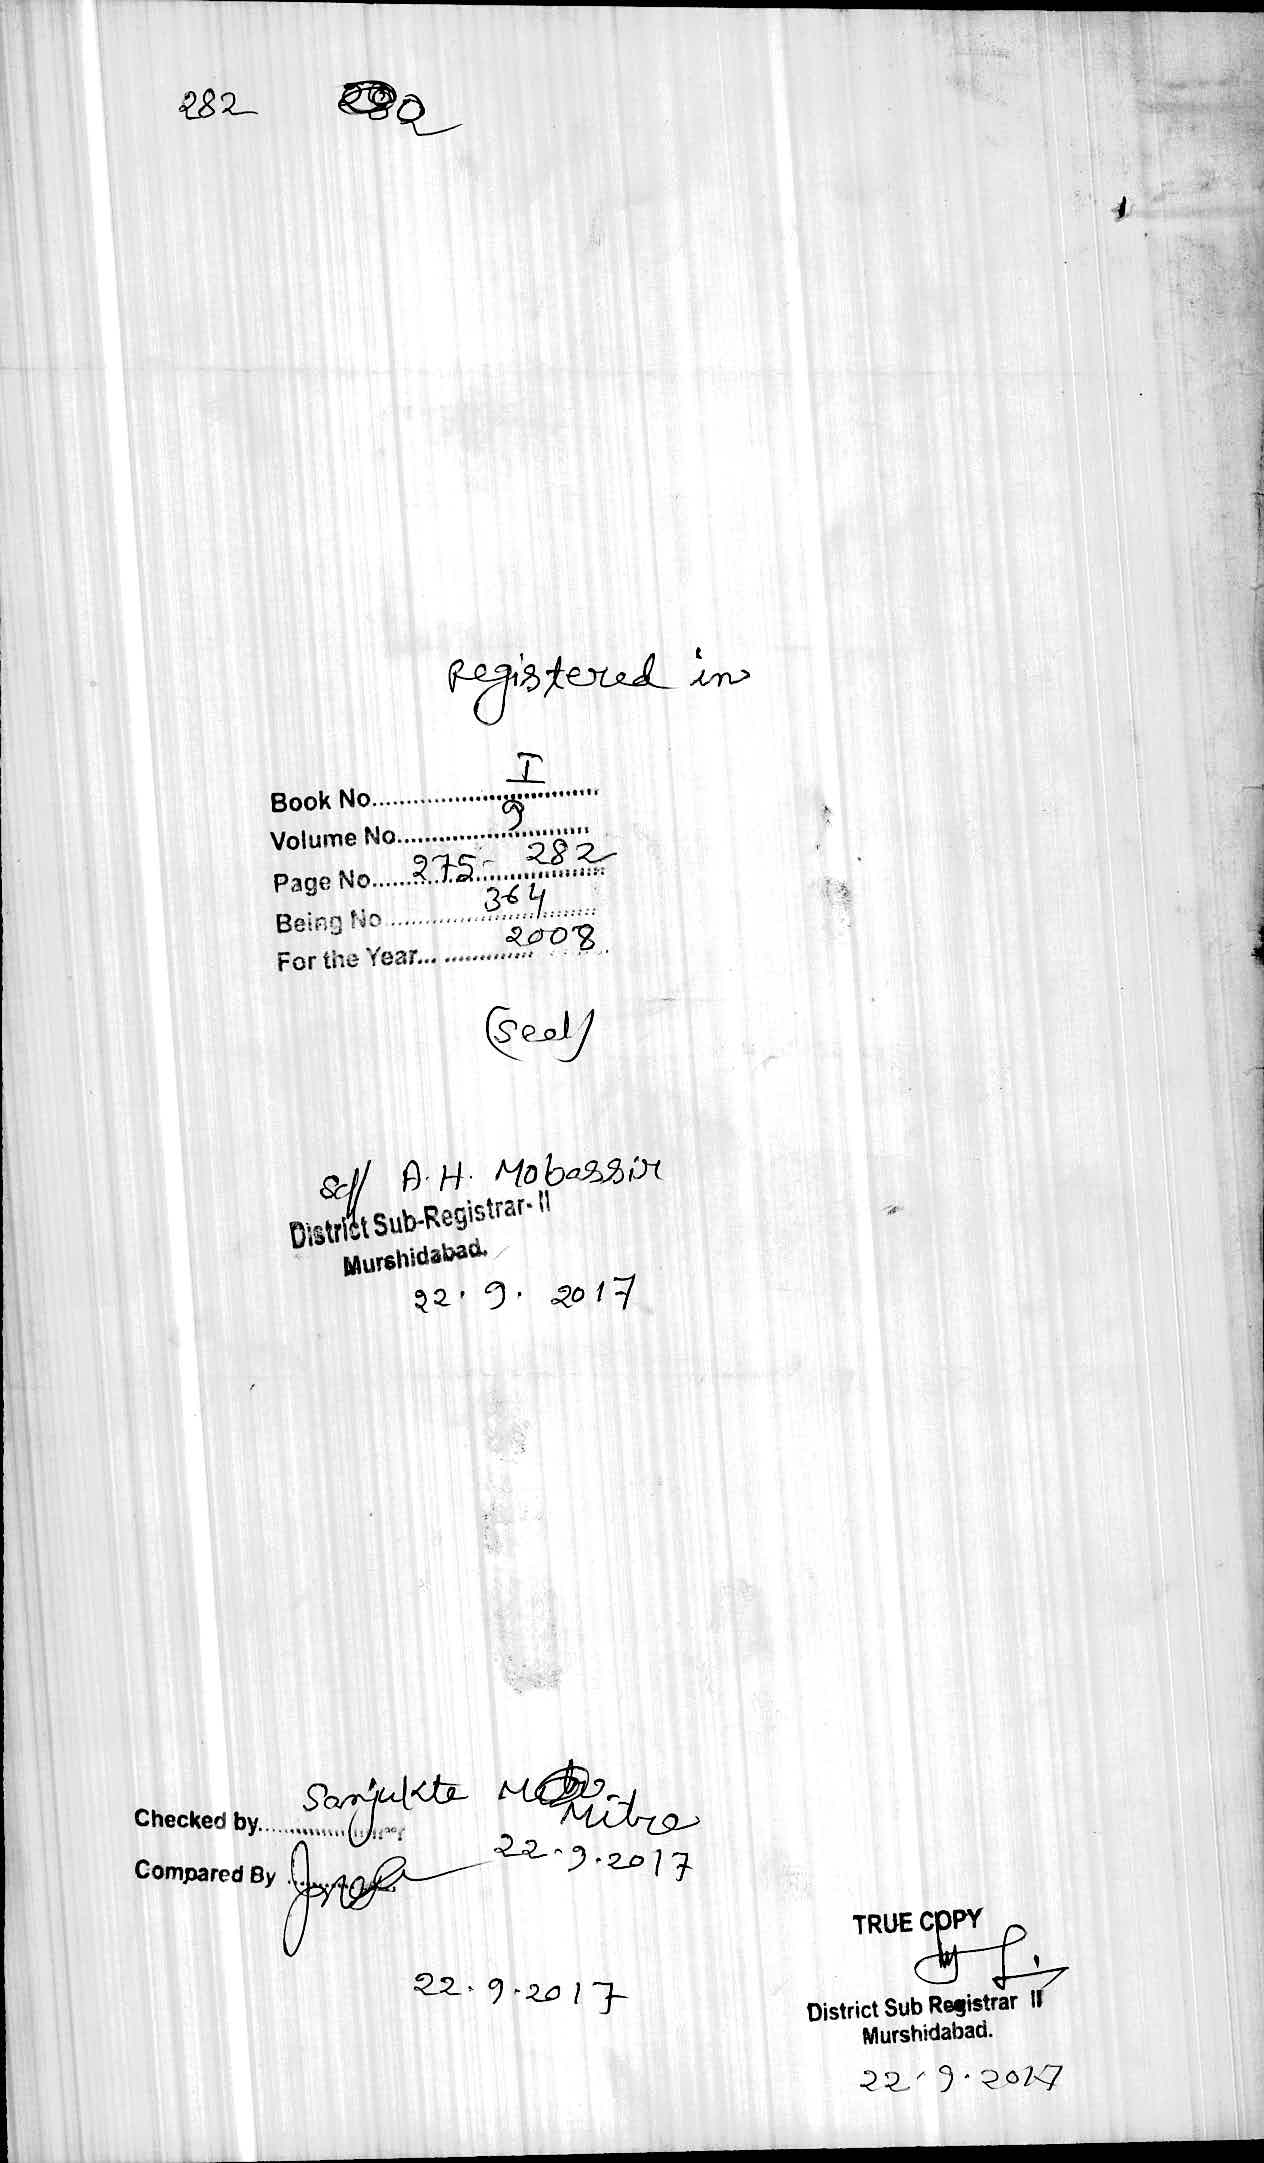 282
Registered in
Book No............ I
Volume No............ 9
Page No...... 275 - 282
Being No............ 364
For the Year............ 2008
(Seal)
Sd/ A. H. Mobassir
District Sub-Registrar- II
Murshidabad.
22. 9. 2017
Checked by............ Sanjukta Mitra
22.9.2017
Compared By
22.9.2017
TRUE COPY
District Sub Registrar II
Murshidabad.
22.9.2017